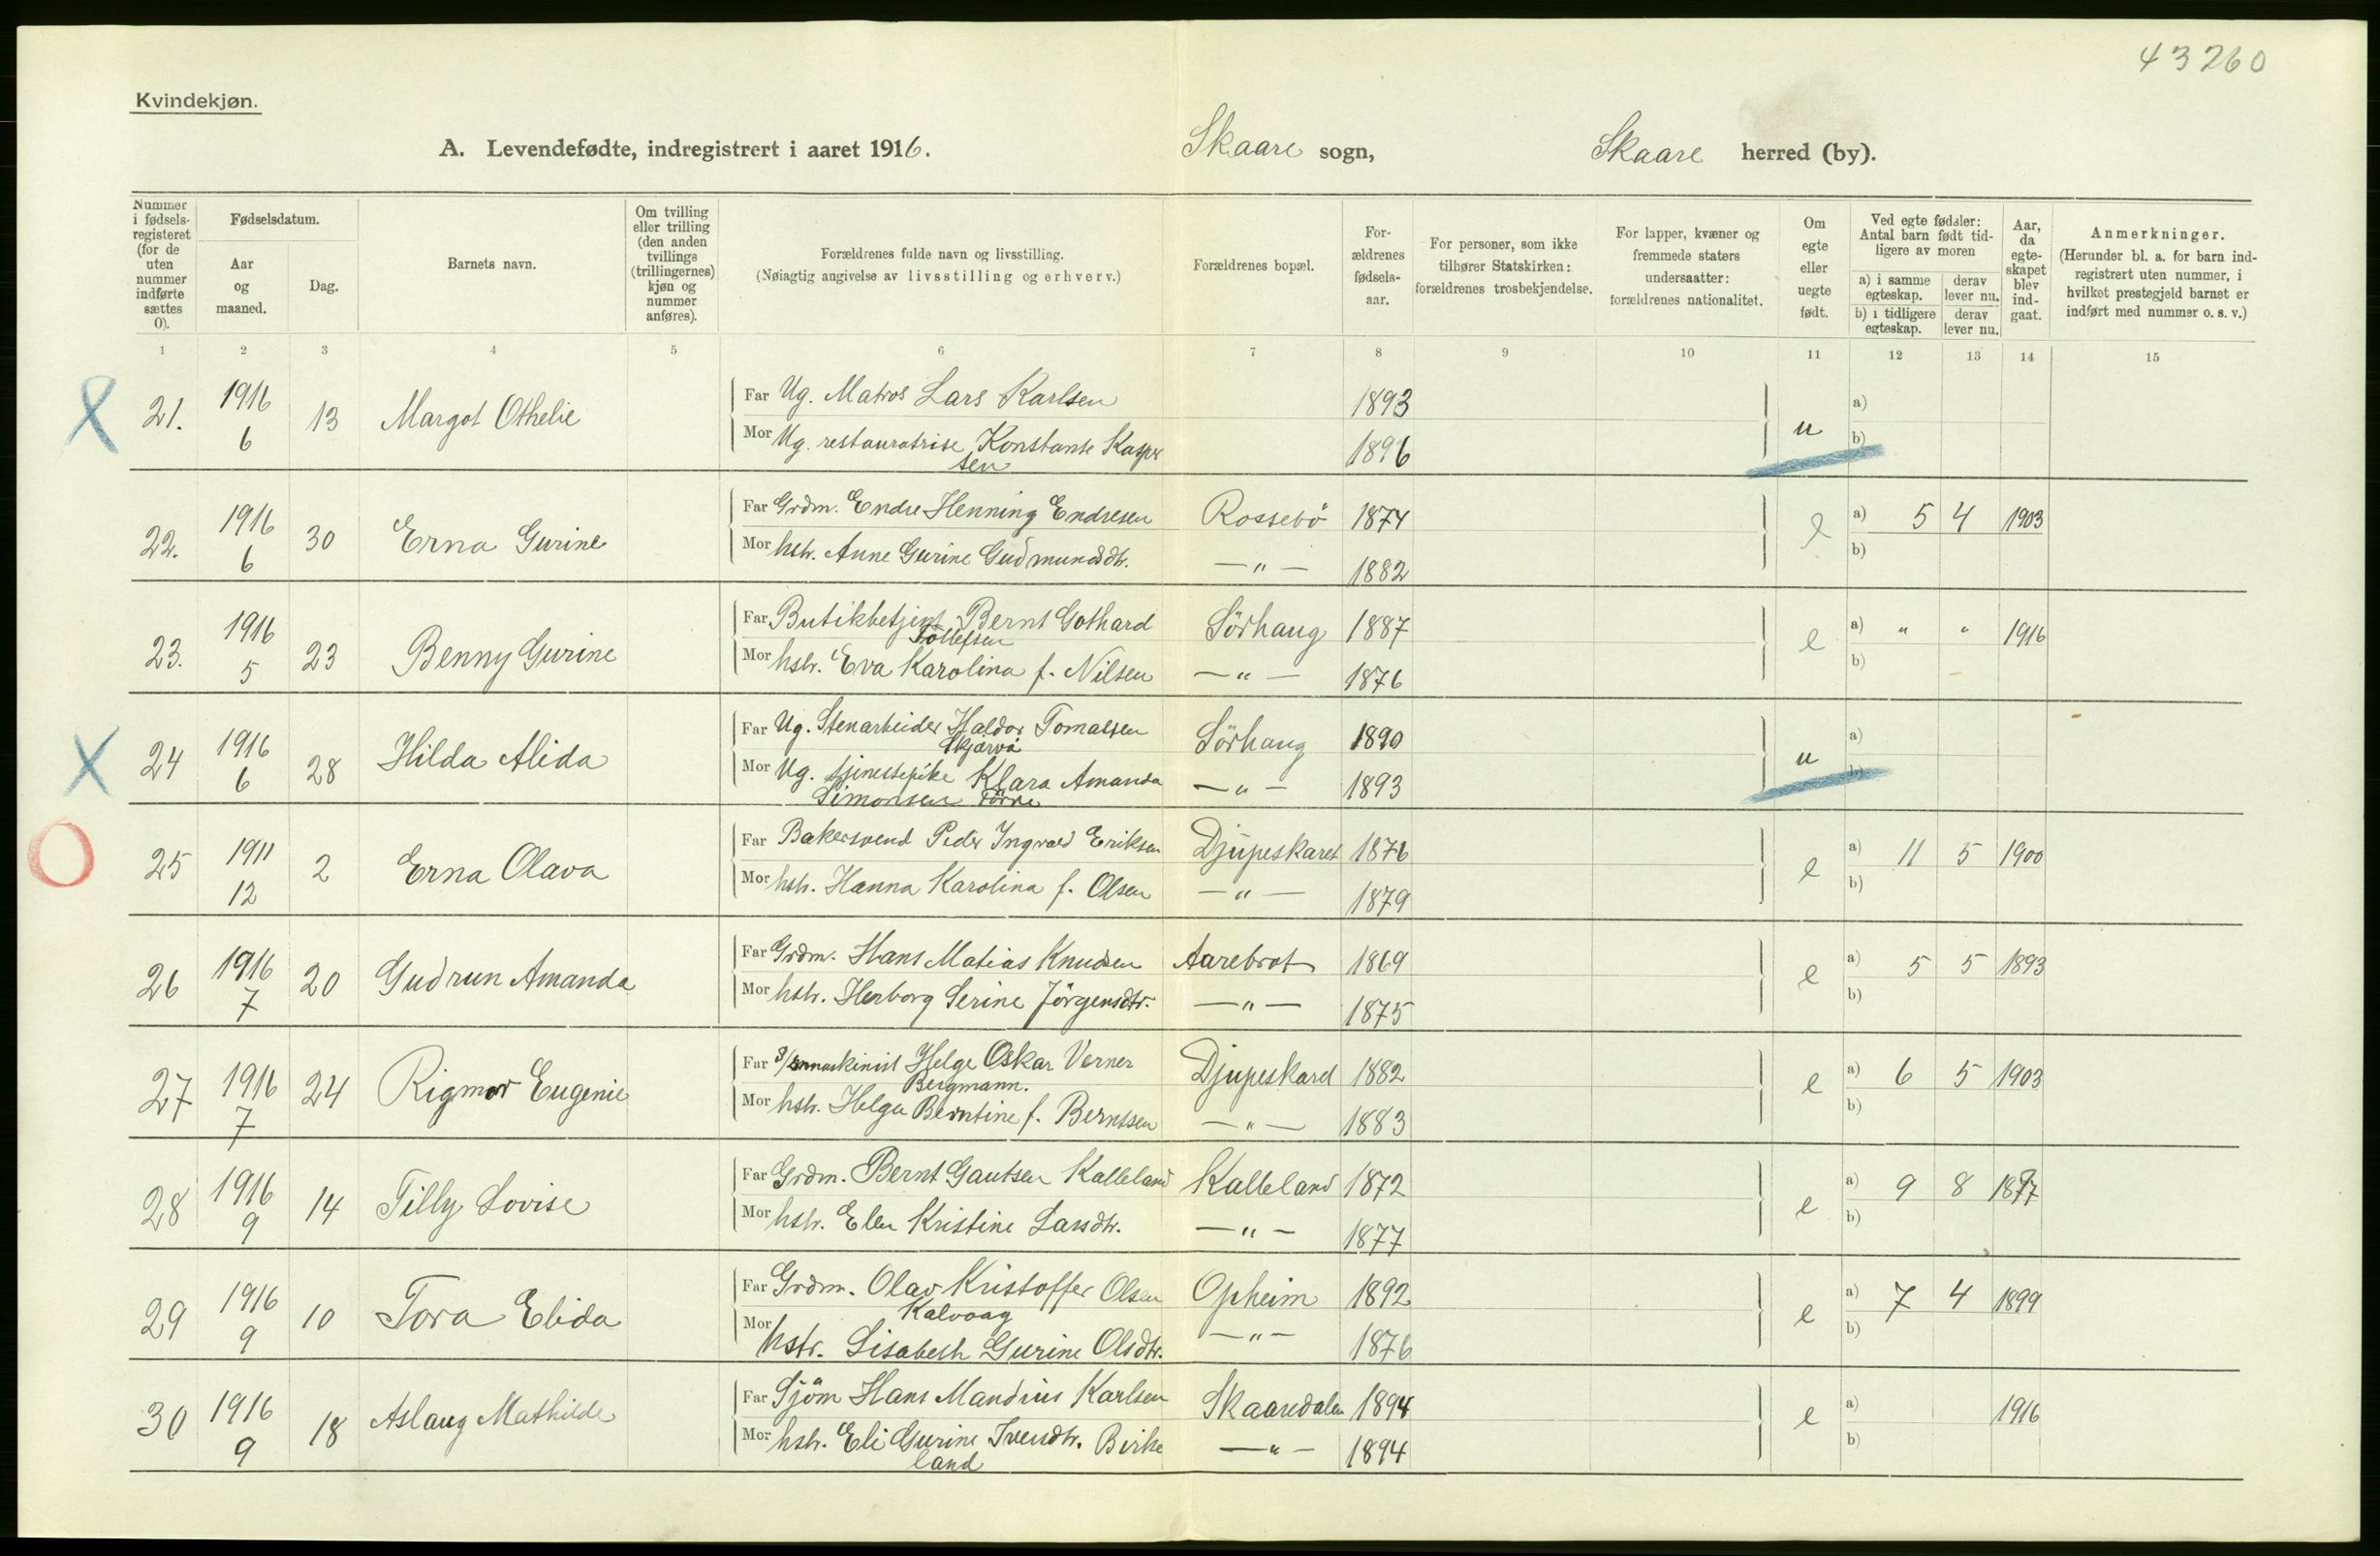 43260
Kvindekjøn.
A. Levendefødte, indregistrert i aaret 1916. Skaare sogn, Skaare herred (by).
Nummer i fødselsregisteret (for de uten nummer indførte sættes 0).
Fødselsdatum.
Aar og maaned.
Dag.
Barnets navn.
Om tvilling eller trilling (den anden tvillings (trillingernes) kjøn og nummer anføres).
Forældrenes fulde navn og livsstilling.
(Nøiagtig angivelse av livsstilling og erhverv.)
Forældrenes bopæl.
Forældrenes fødselsaar.
For personer, som ikke tilhører Statskirken: forældrenes trosbekjendelse.
For lapper, kvæner og fremmede staters undersaatter: forældrenes nationalitet.
Om egte eller uegte født.
Ved egte fødsler: Antal barn født tidligere av moren
a) i samme egteskap. derav lever nu.
b) i tidligere egteskap. derav lever nu.
Aar, da egteskapet blev indgaat.
Anmerkninger.
(Herunder bl. a. for barn indregistrert uten nummer, i hvilket prestegjeld barnet er indført med nummer o. s. v.)
1 2 3 4 5 6 7 8 9 10 11 12 13 14 15
X 21. 1916 6 13 Margot Othelie
Far Ug. Matros Lars Karlsen 1893
Mor Ug. restauratrise Konstanse Kasper
sen 1896
u a) b)
22. 1916 6 30 Erna Gurine
Far Grdm. Endre Henning Endresen Rossebö 1874
Mor hstr. Anne Gurine Gudmundsdtr. —"— 1882
e a) 5 4 1903
b)
23. 1916 5 23 Benny Gurine
Far Butikbetjent Bernt Gothard
Tollefsen Sörhaug 1887
Mor hstr. Eva Karolina f. Nilsen —"— 1876
e a) " " 1916
b)
X 24 1916 6 28 Hilda Alida
Far Ug. Stenarbeider Haldor Tomassen
Sörhaug 1890
Mor Ug. tjenestepike Klara Amanda
Simonsen —"— 1893
u a) b)
O 25 1911 12 2 Erna Olava
Far Bakersvend Peder Ingvald Eriksen Djupeskaret 1876
Mor hstr. Hanna Karolina f. Olsen —"— 1879
e a) 11 5 1900
b)
26 1916 7 20 Gudrun Amanda
Far Grdm. Hans Matias Knudsen Aarebrot 1869
Mor hstr. Herborg Serine Jörgensdtr. —"— 1875
e a) 5 5 1893
b)
27 1916 7 24 Rigmor Eugenie
Far Helge Oskar Verner
Bergmann. Djupeskaret 1882
Mor hstr. Helga Berntine f. Berntsen —"— 1883
e a) 6 5 1903
b)
28 1916 9 14 Tilly Lovise
Far Grdm. Bernt Gautsen Kalleland Kalleland 1872
Mor hstr. Elen Kristine Larsdtr. —"— 1877
e a) 9 8 1897
b)
29 1916 9 10 Tora Elida
Far Grdm. Olav Kristoffer Olsen
Kalvaag Opheim 1892
Mor hstr. Lisabeth Gurine Olsdtr. —"— 1876
e a) 7 4 1899
b)
30 1916 9 18 Aslaug Mathilde
Far Sjöm Hans Mandrius Karlsen Skaaredalen 1894
Mor hstr. Eli Gurine Iversdtr. Birke
land —"— 1894
e a) 1916
b)